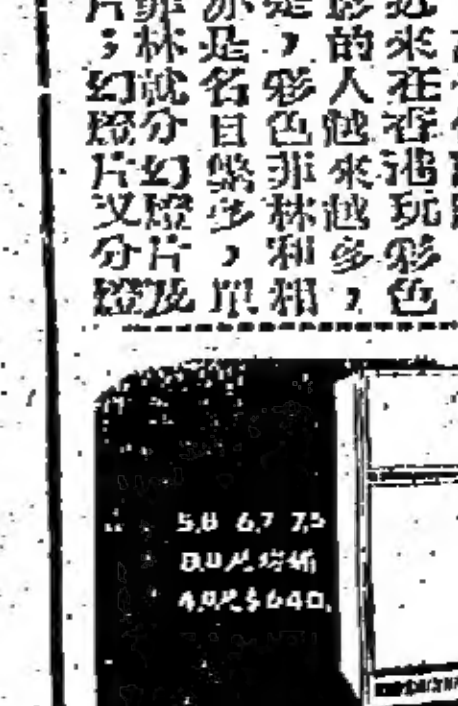 來在香港玩彩色
影的人越來越多,
是,彩色菲林和相
亦是名目繁多,單
菲林就分幻燈片及
片;幻燈片又分燈
5,8 6,7 7,5
4,0尺$640.